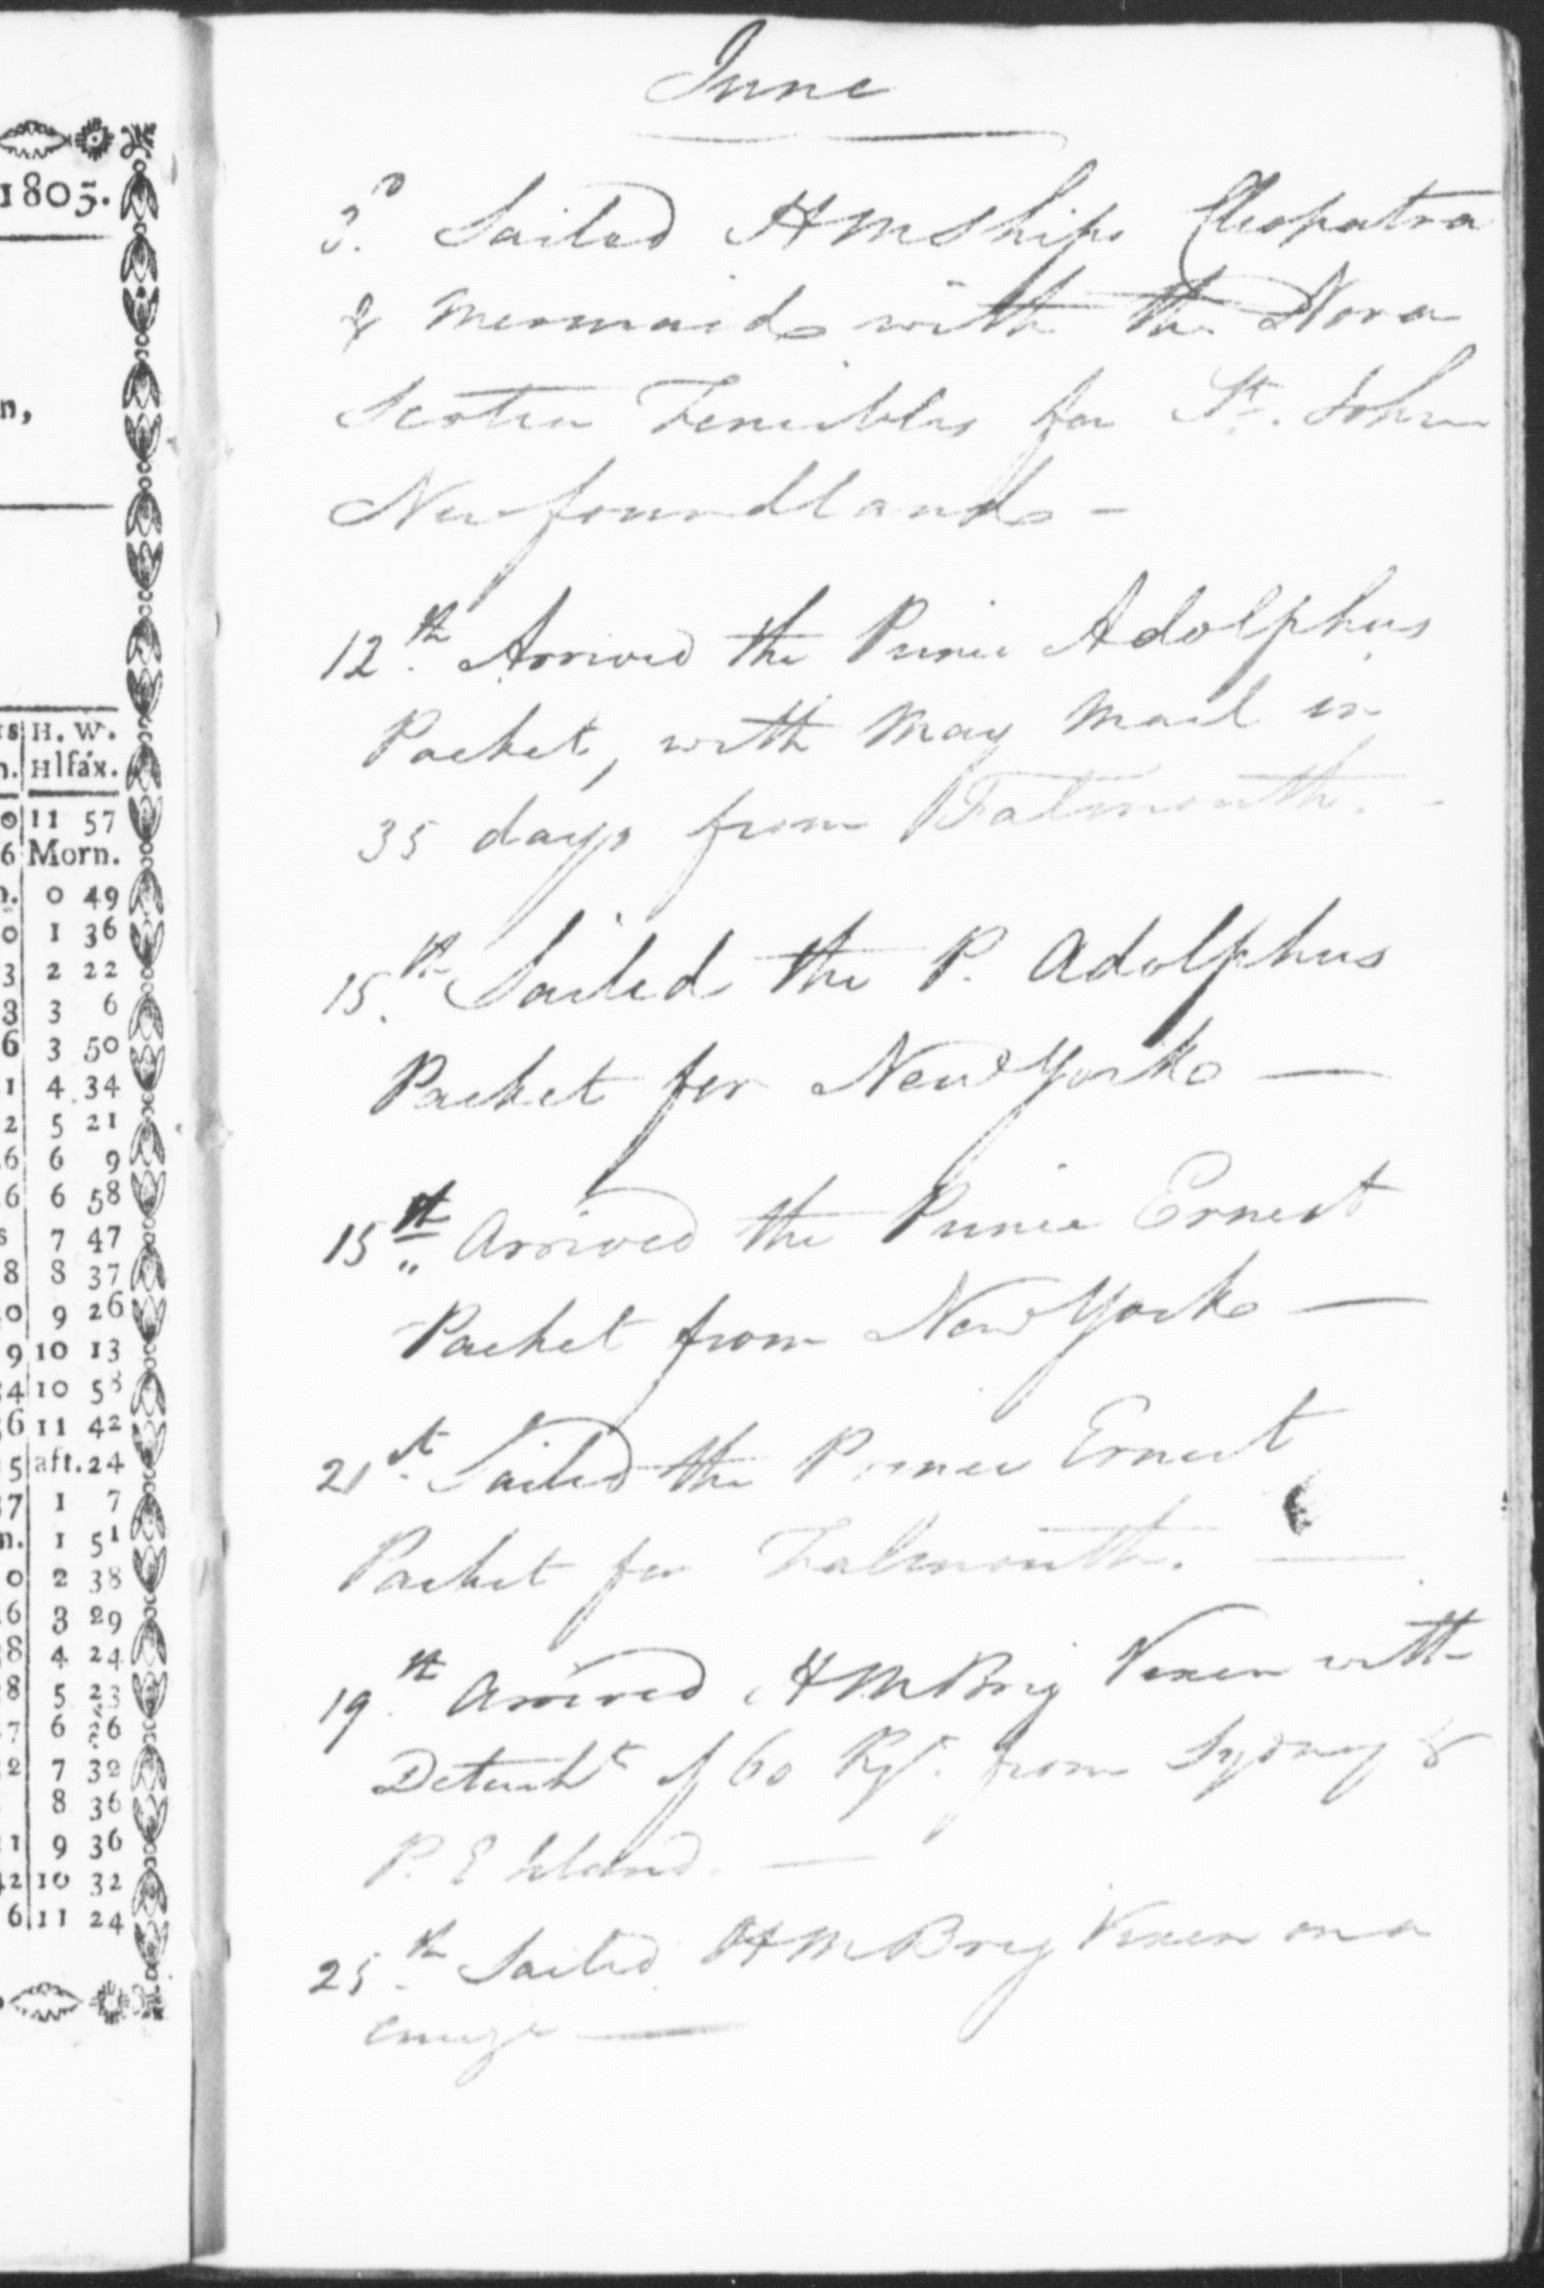 1805.
n,
H. W.
Hlfáx.
11 57
Morn.
0 49
1 36
2 22
3 6
3 50
4 34
5 21
6 9
6 58
7 47
8 37
9 26
10 13
10 58
11 42
aft. 24
1 7
1 51
2 38
3 29
4 24
5 23
6 26
7 32
8 36
9 36
10 32
11 24
June
3.d Sailed HM Ships Cleopatra
& Mermaid with the Nova
Scotia Fencibles for St. John
Newfoundland -
12.th Arrived the Prince Adolphus
Packet, with May Mail in
35 days from Falmouth. -
15.th Sailed the P. Adolphus
Packet for New York —
15th Arrived the Prince Ernest
Packet from New York —
21.st Sailed the Prince Ernest
Packet for Falmouth. —
19.th Arrived HM Brig Vixen with
Detacht of 60 Rgt. from Sydney &
P. E Island. —
25.th Sailed HM Brig Vixen on a
Cruize —